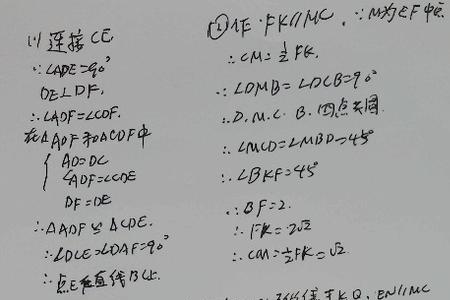 (1) 连接 CE
∵∠ADE=90°
DE⊥DF.
∴∠ADF=∠CDF.
在△ADF和△CDF中
AD=DC
∠ADF=∠CDE
DF=DE
∴△ADF≌△CDE.
∴∠DCE=∠DAF=90°
∴点E在直线BC上.
(2)作 FK//MC, ∵M为EF中点
∴CM=½FK.
∴∠DMB=∠DCB=90°
∴D.M.C.B.四点共圆
∴∠MCD=∠MBD=45°
∴∠BKF=45°
∴BF=2.
∴FK=2√2
∴CM=½FK=√2
K Q, EN//MC